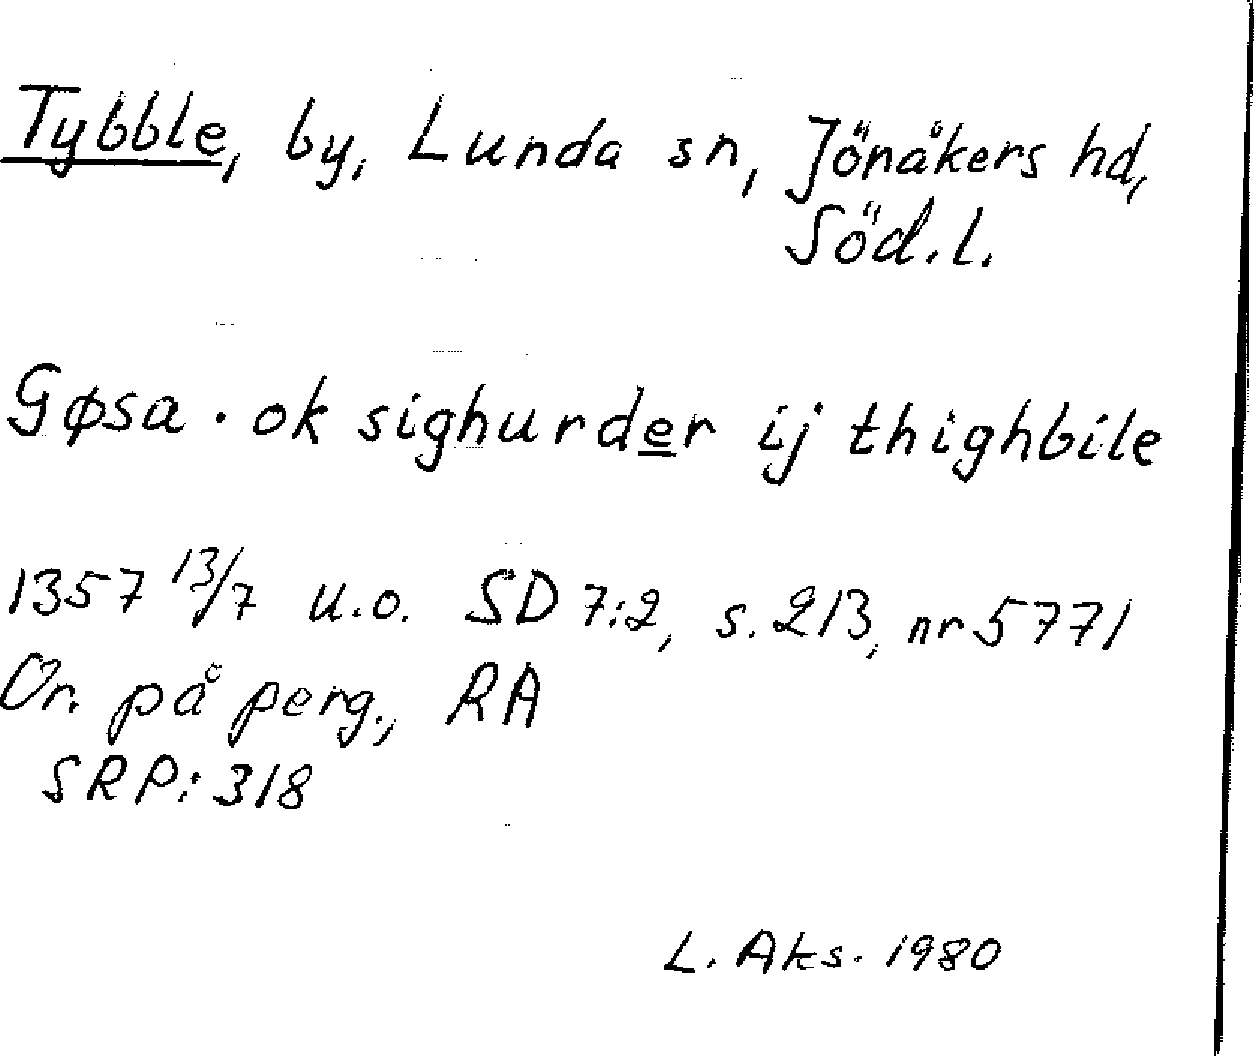 Tybble, by, Lunda sn, Jönåkers hd,
Söd. l.
Gøsa · ok sighurder ij thighbile
1357 13/7 u.o. SD 7:2, s. 213, nr 5771
Or. på perg., RA
SRP: 318
L. Aks. 1980